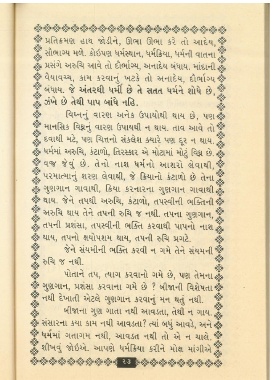 પ્રતિક્રમણ હાય જોડીને, ઊભા ઊભા કરે તો આદેય,
સૌભાગ્ય મળે. કોઈપણ ધર્મસ્થાન, ધર્મક્રિયા, ધર્મની વાતના
પ્રસંગે અરુચિ આવે તો દૌર્ભાગ્ય, અનાદેય બંધાય. માંદાની
વૈયાવચ્ચ, કામ કરવાનું ખટકે તો અનાદેય, દૌર્ભાગ્ય
બંધાય. જે અંતરથી ધર્મી છે તે સતત ધર્મને શોધે છે,
ઝંખે છે તેથી પાપ બાંધે નહિ.
વિઘ્નનું વારણ અનેક ઉપાયોથી થાય છે, પણ
માનસિક વિઘ્નનું વારણ ઉપાયથી ન થાય. તાવ આવે તો
દવાથી મટે, પણ ચિત્તનો સંકલેશ ક્યારે પણ દૂર ન થાય.
ધર્મમાં અરુચિ, કંટાળો, તિરસ્કાર એ મોટામાં મોટું વિઘ્ન છે.
વજ્ર જેવું છે. તેનો નાશ ધર્મનો આશરો લેવાથી,
પરમાત્માનું શરણ લેવાથી, જે ક્રિયાનો કંટાળો છે તેના
ગુણગાન ગાવાથી, ક્રિયા કરનારના ગુણગાન ગાવાથી
થાય. જેને તપથી અરુચિ, કંટાળો, તપસ્વીની ભક્તિનો
અરુચિ થાય તેને તપની રુચિ જ નથી. તપના ગુણગાન,
તપની પ્રશંસા, તપસ્વીની ભક્તિ કરવાથી પાપનો નાશ
થાય, તપનો ક્ષયોપશમ થાય, તપની રુચિ પ્રગટે.
જેને સંયમીની ભક્તિ કરવી ન ગમે તેને સંયમની
રુચિ જ નથી.
પોતાને તપ, ત્યાગ કરવાનો ગમે છે, પણ તેમના
ગુણગાન, પ્રશંસા કરવાના ગમે છે ? બીજાની વિશેષતા
નથી દેખાતી એટલે ગુણગાન કરવાનું મન થતું નથી.
બીજાના ગુણ ગાતા નથી આવડતા, તેથી ન ગાય.
સંસારના કયા કામ નથી આવડતા? ત્યાં બધું આવડે, અને
ધર્મમાં ગતાગમ નથી, આવડત નથી તો એ ન ચાલે.
શીખવું જોઇએ. આપણે ધર્મક્રિયા કરીને મોક્ષ માંગીએ
૨૩